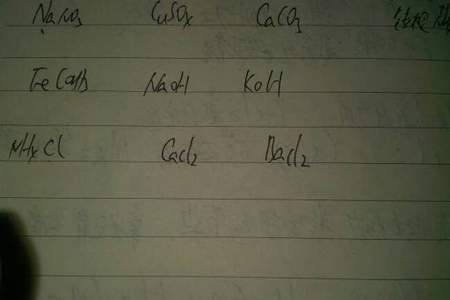 CuSO4 CaCO3
Fe(OH)3 NaOH KOH
NH4Cl CaCl2 BaCl2